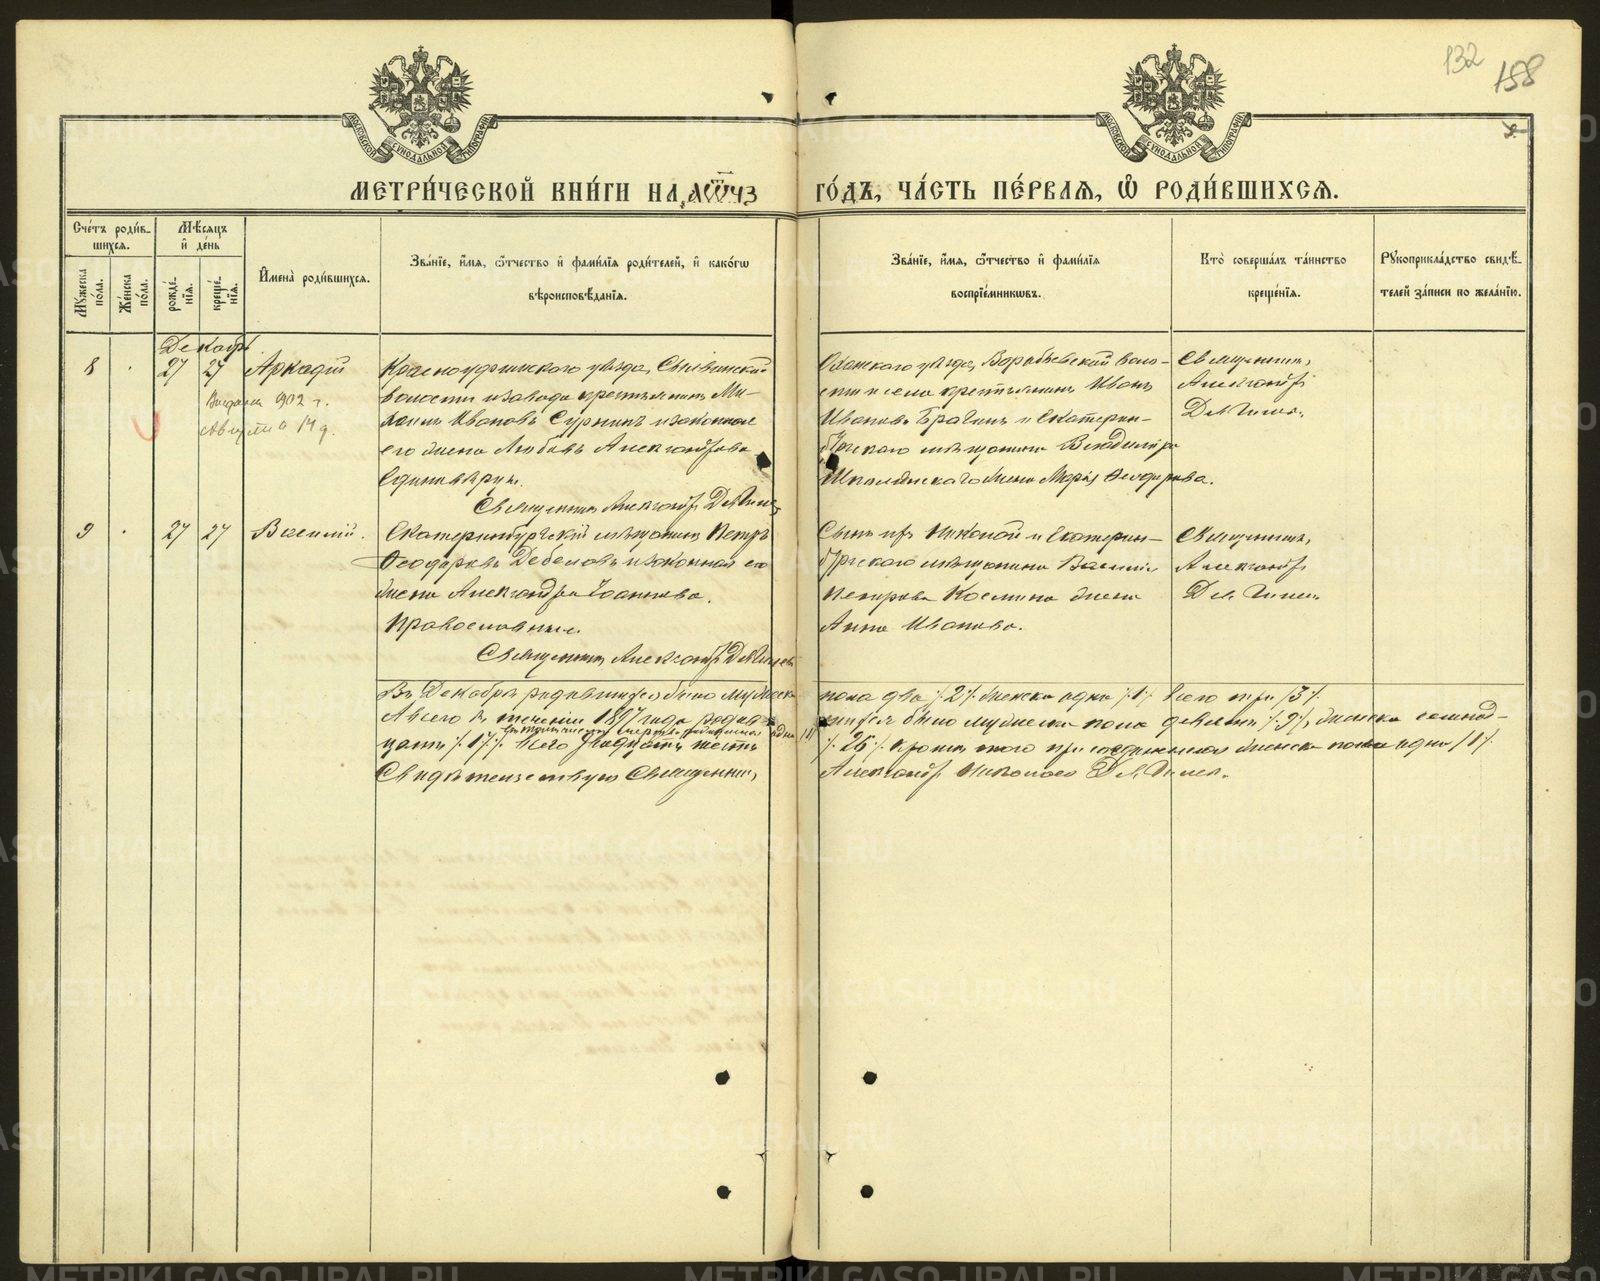 132
158
МОСКОВСКОЙ СѴНОДАЛЬНОЙ ТИПОГРАФІИ
МОСКОВСКОЙ СѴНОДАЛЬНОЙ ТИПОГРАФІИ
МЕТРИ́ЧЕСКОЙ КНИ́ГИ НА ҂АѾЧЗ ГО́ДЪ, ЧА́СТЬ ПЕ́РВАЯ, Ѡ҆ РОДИ́ВШИХСЯ.
Сче́тъ роди́в-
шихся.
Мѣ́сяцъ
и҆ де́нь
Мꙋ́жеска по́ла.
Же́нска по́ла.
рожде́-
нїя.
креще́-
нїя.
И҆мена̀ роди́вшихся.
Зва́нїе, и҆́мя, ѻ҆́тчество и҆ фами́лїя роди́телей, и҆ како́гѡ
вѣроисповѣ́данїя.
Зва́нїе, и҆́мя, ѻ҆́тчество и҆ фами́лїя
воспрїе́мникѡвъ.
Кто̀ соверша́лъ та́инство
креще́нїя.
Рꙋкоприкла́дство свидѣ́-
телей за́писи по жела́нїю.
Декабрь
8 27 27 Аркадій
Выдана 902 г.
Августа 14 д.
Красноуфимскаго уѣзда, Сылвинской
волости и завода крестьянинъ Ми-
хаилъ Ивановъ и законная
его жена Любовь Александрова
Единовѣрцы.
Священникъ Александръ
Оханскаго уѣзда, Воробьевской воло-
сти и села крестьянинъ Иванъ
Ивановъ и Екатерин-
бургскаго мѣщанина Владиміра
жена Марія Феодорова.
Священникъ
Александръ
9 27 27 Василій.
Екатеринбургскій мѣщанинъ Петръ
Феодоровъ Дебеловъ и законная его
жена Александра Іоаннова.
Православные.
Священникъ Александръ
Сынъ ихъ Николай и Екатерин-
бургскаго мѣщанина Василія
Петрова жена
Анна Иванова.
Священникъ
Александръ
Въ Декабрѣ родившихся было мужеска пола два /2/ женска одна /1/ Всего три /3/.
А всего въ теченіи 1897 года родив- шихся было мужеска пола девять /9/, женска семнад-
цать /17/. Всего двадцать шесть /26/. Кромѣ того присоединенная женска пола одна /1/.
Свидѣтельствую Священникъ Александръ Николаевъ
METRIKI.GASO-URAL.RU